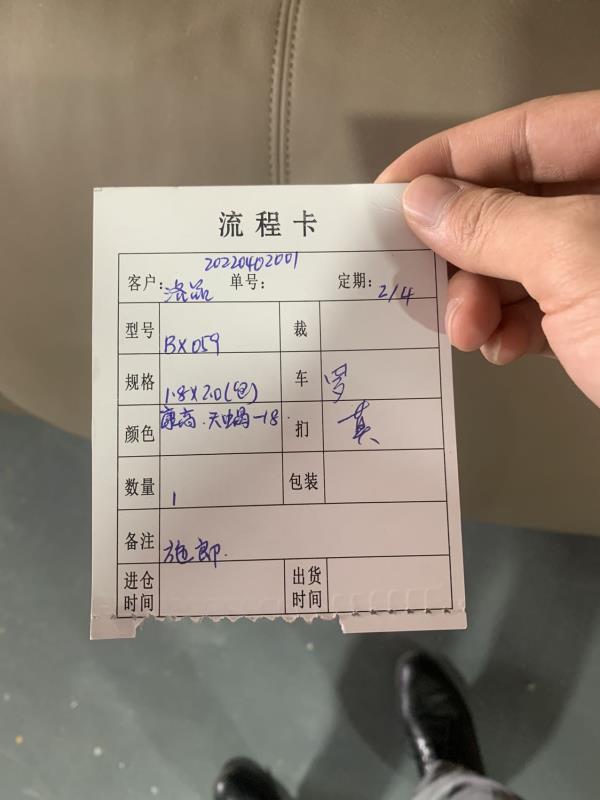 流程卡
20220402001
客户：洛品 单号： 定期：2/4
型号 BX059 裁
规格 1.8X2.0(包) 车 罗
颜色 康高.天蝎-18. 扪 真
数量 1 包装
备注 施郎.
进仓时间 出货时间